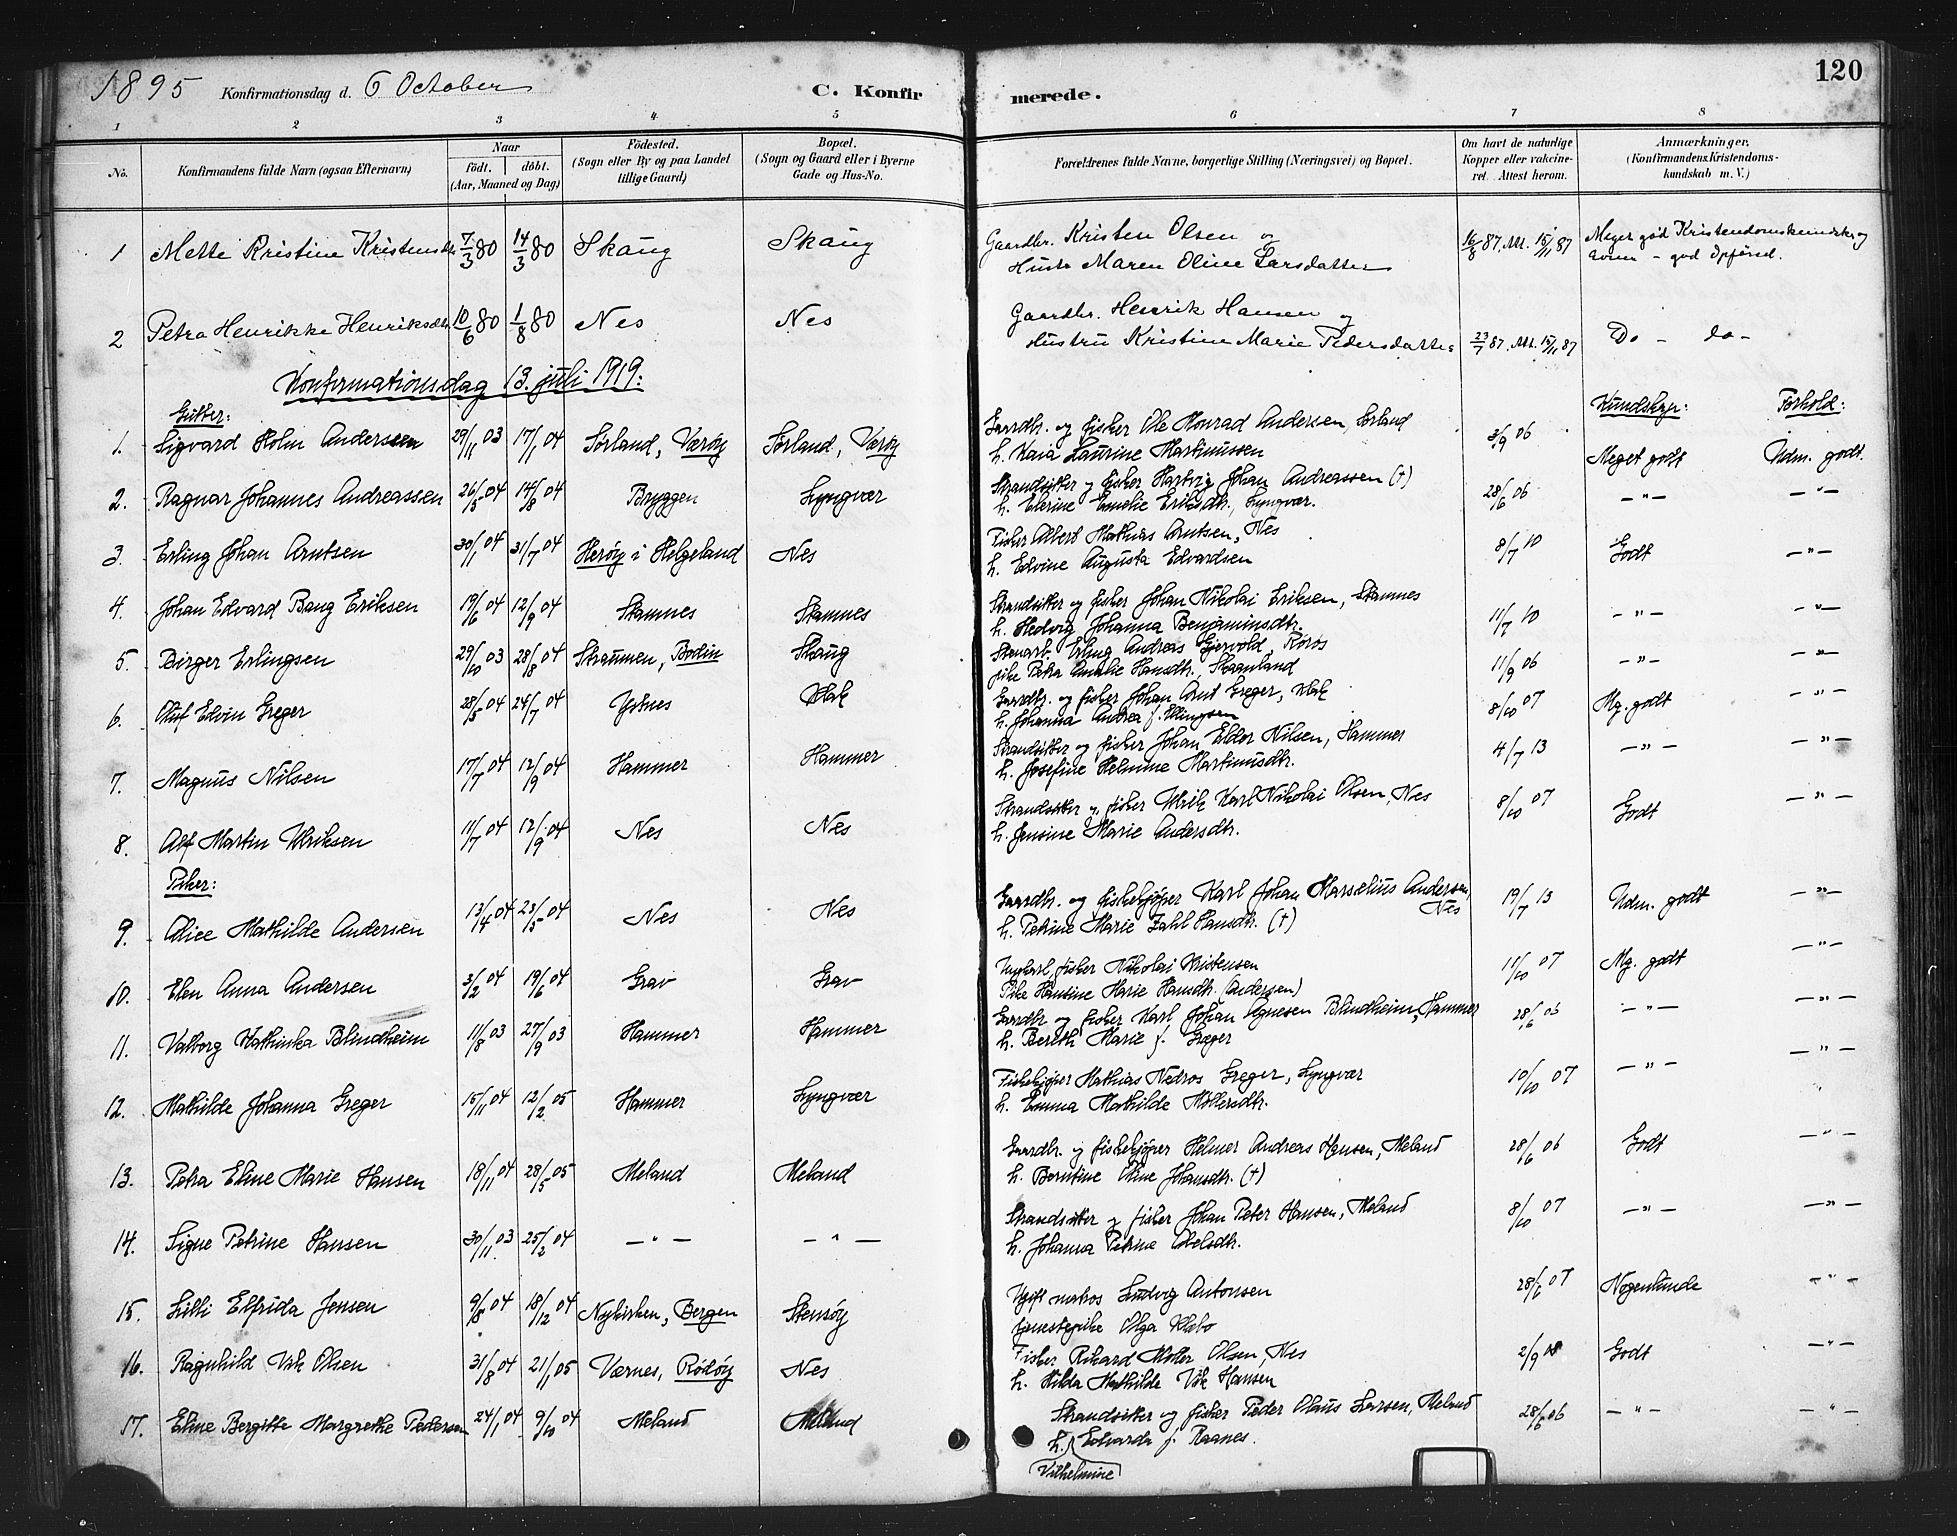 1895 Konfirmationsdag d. 6 October C. Konfirmerede. 120
1 2 3 4 5 6 7 8
No. Konfirmandens fulde Navn (ogsaa Efternavn) Naar födt. döbt. (Aar, Maaned og Dag) Födested. (Sogn eller By og paa Landet tillige Gaard) Bopæl. (Sogn og Gaard eller i Byerne Gade og Hus-No. Forældrenes fulde Navne, borgerlige Stilling (Næringsvei) og Bopæl. Om havt de naturlige Kopper eller vakcineret. Attest herom. Anmærkninger. (Konfirmandens Kristendomskundskab m. V.)
1 Mette Kristine Kristensdtr 7/3 80 14/3 80 Skaug Skaug Gaardbr. Kristen Olsen og 16/8 87. Att. 15/11 87 Meget god Kristendomskundskab og
Hustr Maren Oline Larsdatter god Opförsel.
2 Petra Henrikke Henriksdtr 10/6 80 1/8 80 Nes Nes Gaardbr. Henrik Hansen og
Hustru Kristine Marie Pedersdatter 23/7 87. Att. 15/11 87 Do - do -
Konfirmationsdag 13. juli 1919:
Gutter: Kundskap: Forhold:
1. Sigvard Holm Anderssen 29/11 03 17/1 04 Sørland, Værøy Sørland, Værøy Gaardbr. og fisker Ole Konrad Andersen, Sørland 3/9 06 Meget godt Udm. godt.
h. Kaia Laurine Martinussen
2. Ragnar Johannes Andreassen 26/5 04 14/8 04 Bryggen Lyngvær Strandsitter og fisker Hartvig Johan Andreassen (+) 28/6 06 — " — — " —
h. Elerine Emelie Eriksdtr., Lyngvær.
3. Erling Johan Arntsen 30/1 04 31/7 04 Herøy i Helgeland Nes Fisker Albert Mathias Arntsen, Nes 8/7 10 Godt — " —
h. Edvine Augusta Edvardsen
4. Johan Edvard Bang Eriksen 19/6 04 12/9 04 Stamnes Stamnes Strandsitter og fisker Johan Nikolai Eriksen, Stamnes 11/7 10 — " — — " —
h. Hedvig Johanna Benjaminsdtr.
5. Birger Erlingsen 29/10 03 28/8 04 Straumen, Bodin Skaug Stenarb. Erling Andreas Gjervold, Röros 11/9 06 — " — — " —
pike Petra Amalie Hansdtr., Skaanland
6. Oluf Edvin Greger 28/5 04 24/7 04 Ystnes Gaardbr. og fisker Johan Arnt Greger, 8/10 07 Mg. godt — " —
h. Johanna Andrea f. Ellingsen
7. Magnus Nilsen 17/7 04 12/9 04 Hammer Hammer Strandsitter og fisker Johan Eldor Nilsen, Hammer 4/7 13 — " — — " —
h. Josefine Helmine Martinusdtr.
8. Alf Martin Ulriksen 11/7 04 12/9 04 Nes Nes Strandsitter og fisker Ulrik Karl Nikolai Olsen, Nes 8/10 07 Godt — " —
h. Jensine Marie Andersdtr.
Piker:
9. Alice Mathilde Andersen 13/4 04 23/5 04 Nes Nes Gaardbr. og fiskekjøper Karl Johan Marselius Andersen, Nes 19/7 13 Udm. godt — " —
h. Petrine Marie Zahl Hansdtr. (+)
10. Elen Anna Andersen 3/2 04 19/6 04 Grav Grav Ungkarl, fisker Nikolai Kristensen 11/10 07 Mg. godt — " —
Pike Hansine Marie Hansdtr. (Andersen)
11. Valborg Kathinka Blindheim 11/8 03 27/9 03 Hammer Hammer Gaardbr. og fisker Karl Johan Agnesen Blindheim, Hammer 28/6 06 — " — — " —
h. Bereth Marie f. Greger
12. Mathilde Johanna Greger 15/11 04 12/2 05 Hammer Lyngvær Fiskekjøper Mathias Nedros Greger, Lyngvær 10/10 07 — " — — " —
h. Emma Mathilde Møllersdtr.
13. Petra Eline Marie Hansen 18/11 04 28/5 05 Meland Meland Gaardbr. og fiskekjøper Helmer Andreas Hansen, Meland 28/6 06 Godt — " —
h. Berntine Oline Johansdtr. (+)
14. Signe Petrine Hansen 30/11 03 25/2 04 — " — — " — Strandsitter og fisker Johan Peter Hansen, Meland 8/10 07 — " — — " —
h. Johanna Petrine Abelsdtr.
15. Lilli Elfrida Jensen 9/8 04 18/12 04 Nykirken, Bergen Stensøy Ugift matros Ludvig Antonsen 28/6 07 Nogenlunde — " —
tjenestepike Olga Klæbo
16. Ragnhild Vik Olsen 31/8 04 21/1 05 Værnes, Rödöy Nes Fisker Rikard Møller Olsen, Nes 2/9 08 Godt — " —
h. Hilda Mathilde Vik Hansen
17. Eline Bergitte Margrethe Pedersen 24/1 04 9/10 04 Meland Meland Strandsitter og fisker Peder Olaus Larsen, Meland 28/6 06 — " — — " —
h. Edvarda f. Raanes.
Vilhelmine